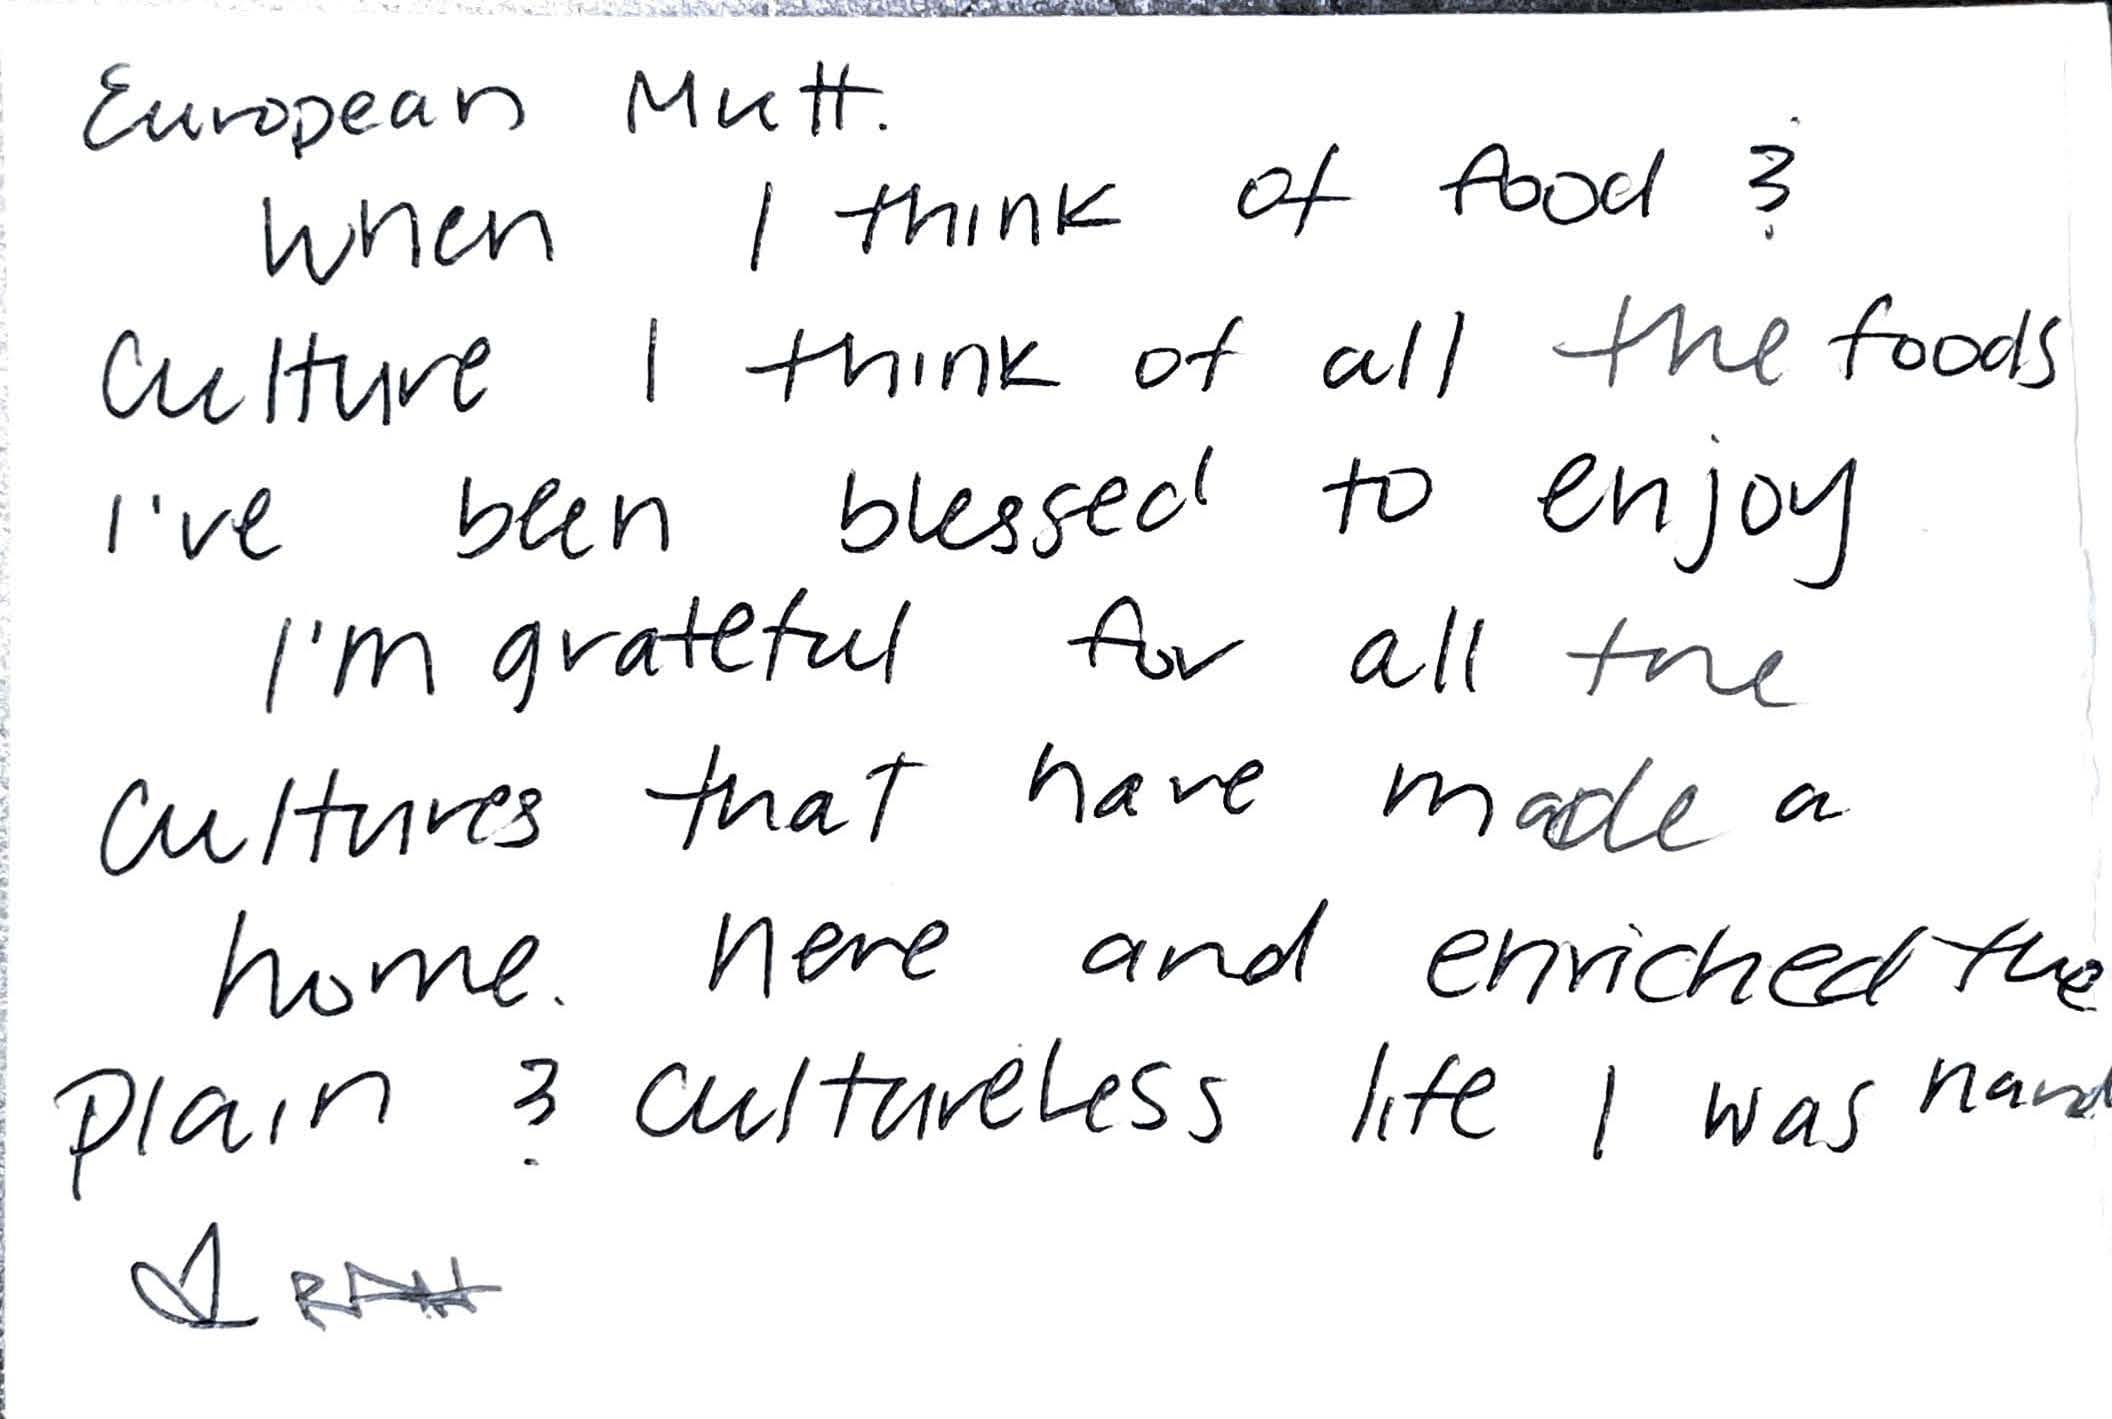 European Mutt.
When I think of food &
culture I think of all the foods
I've been blessed to enjoy
I'm grateful for all the
cultures that have made a
home. here and enriched the
plain & cultureless life I was hand